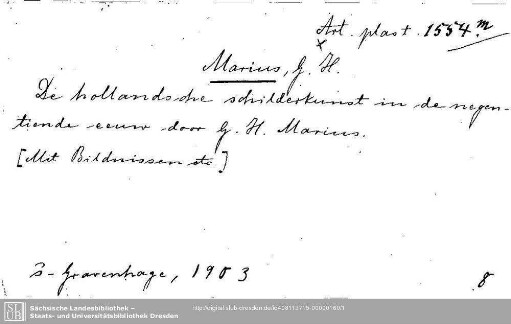 Art. plast. 1554.m
x
Marius, G. H.
De hollandsche schilderkunst in de negen-
tiende eeuw door G. H. Marius.
[Mit Bildnissen etc]
s-Gravenhage, 1903
8
SLUB
Sächsische Landesbibliothek –
Staats- und Universitätsbibliothek Dresden